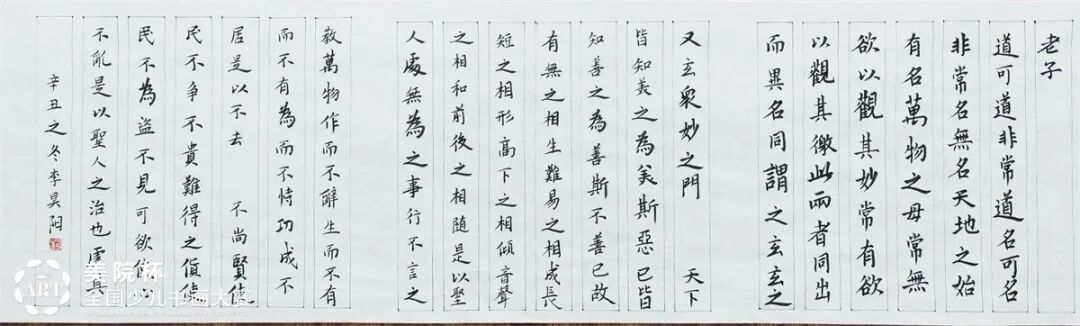 老子
道可道非常道名可名
非常名無名天地之始
有名萬物之母常無
欲以觀其妙常有欲
以觀其徼此兩者同出
而異名同謂之玄玄之
又玄衆妙之門 天下
皆知美之為美斯惡已皆
知善之為善斯不善已故
有無之相生難易之相成長
短之相形高下之相傾音聲
之相和前後之相隨是以聖
人處無為之事行不言之
教萬物作而不辭生而不有
而不有為而不恃功成不
居是以不去 不尚賢使
民不争不貴難得之貨使
民不為盗不見可欲使心
不亂是以聖人之治也虛其
辛丑之冬李昊阳
ART
美院杯
全国少儿书画大赛